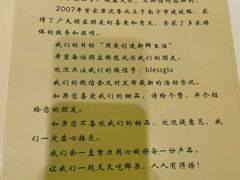 2007年首家果流香成立于南宁市建政路，获
得了广大顾客朋友的喜爱和肯定，荣获了多家媒
体的报导和奖项。
我们的目标“用爱创造新鲜生活”
希望每位顾客都能成为我们的朋友。
欢迎关注我们的微信号：blessglx
我们的微信会及时发布最新活动资讯。
如果您喜爱我们的甜品，请给个赞，并介绍
给您的朋友。
如果您不喜欢我们的甜品，欢迎提意见，我
们一定虚心接受。
我们会一直努力用心做好每一份产品。
让我们一起天天吃鲜果，人人有得捞！